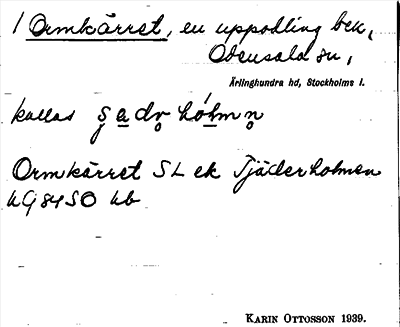 1 Ormkärret, en uppodling bek,
Odensala sn,
Ärlinghundra hd, Stockholms l.
kallas
Ormkärret SL ek Tjäderholmen
hb
KARIN OTTOSSON 1939.